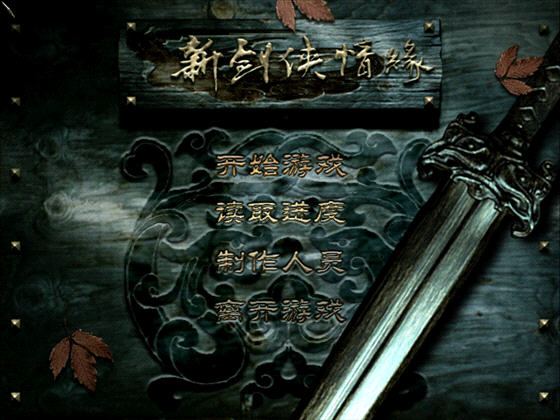 新剑侠情缘
开始游戏
读取进度
制作人员
离开游戏